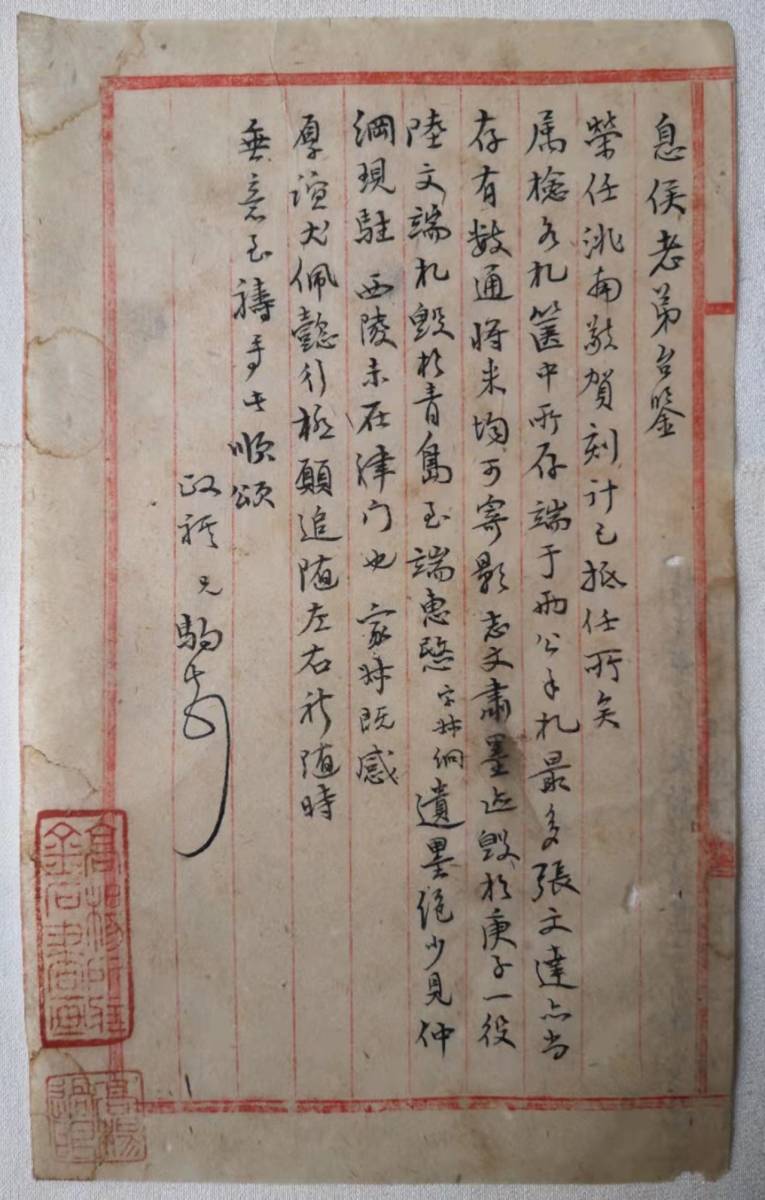 息侯老弟台鉴
榮任洮南敬賀刻计已抵任所矣
属檢各札箧中所存端于两公手札最多張文達亦尚
存有数通將来均可寄影志文肅墨迹毁於庚子一役
陸文端札毁於青島至端惠愍字妹綗遺墨绝少見仲
綱現駐西陵未在津门也家妹既感
厚谊尤佩懿行極願追随左右祈随時
垂意至禱手此順颂
政祺兄駒